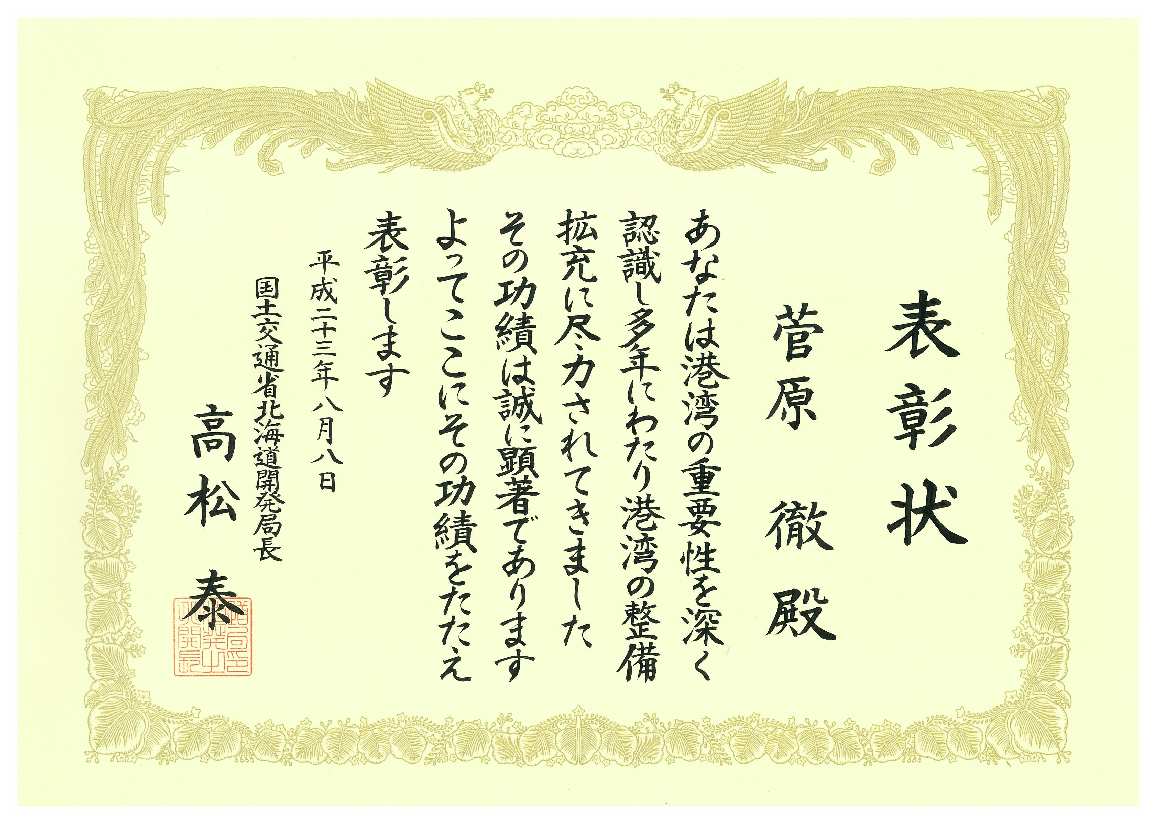 表彰状
菅原 徹殿
あなたは港湾の重要性を深く
認識し多年にわたり港湾の整備
拡充に尽力されてきました
その功績は誠に顕著であります
よってここにその功績をたたえ
表彰します
平成二十三年八月八日
国土交通省北海道開発局長
高松 泰